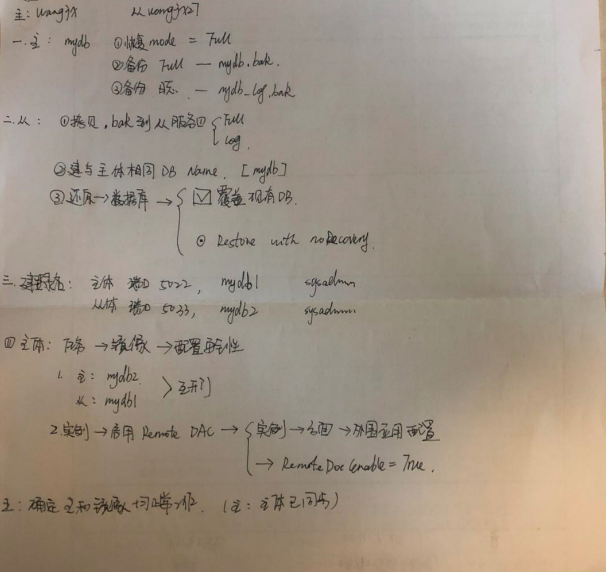 主: wangjx 从 wangjx27
一. 主: mydb ①恢复mode = Full
②备份 Full — mydb.bak.
③备份 日志. — mydb_log.bak
二. 从: ①拷贝.bak到从服务 Full
Log
②建与主体相同 DB Name. [mydb]
③还原→数据库→ ☑ 覆盖现有DB.
⊙ Restore with noRecovery.
三. 登录名: 主体 端口 5022, mydb1 sysadmin
从体 端口 5033, mydb2 sysadmin
四 主体: 任务→镜像→配置安全性
1. 主: mydb2.
从: mydb1
2. 实例→启用 Remote DAC→ 实例→方面→外围应用配置
→ RemoteDacEnable = True.
主: 确定主和镜像 正常 (主: 主体已同步)